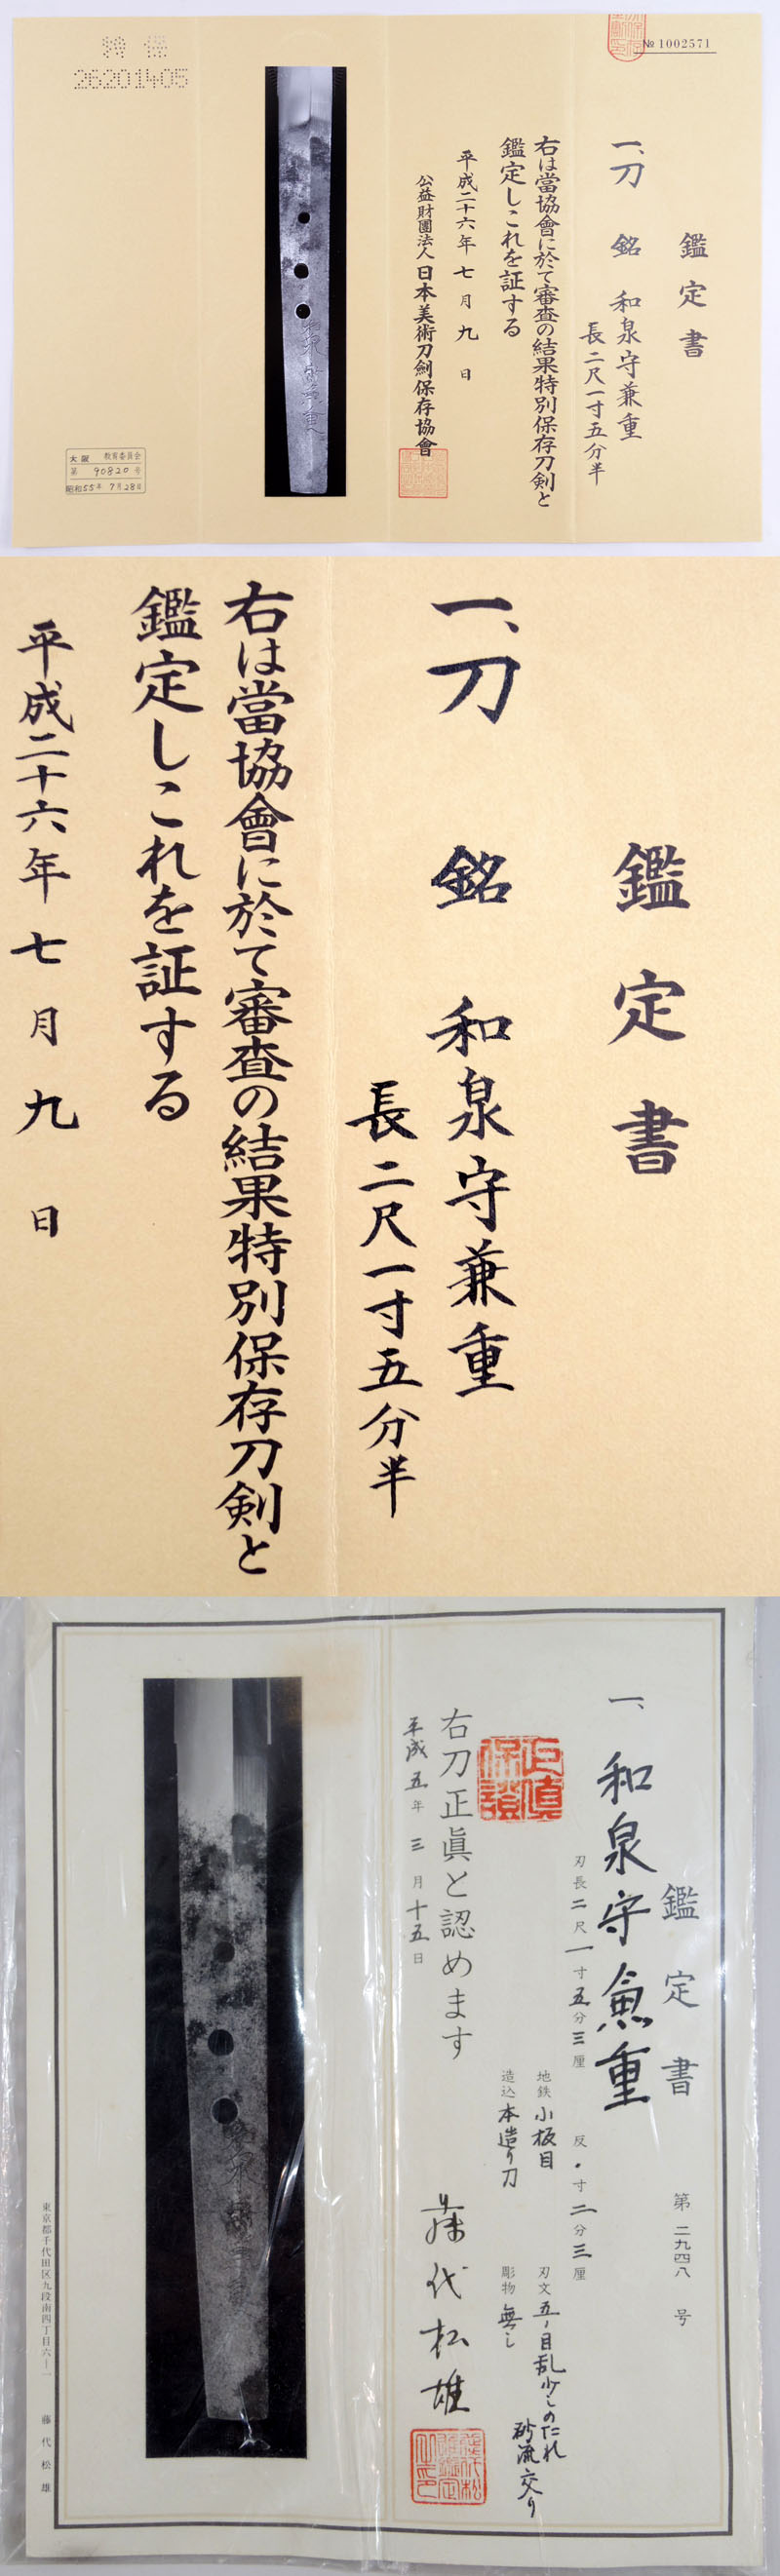 № 1002571
鑑定書
一、刀 銘 和泉守兼重
長二尺一寸五分半
右は當協會に於て審査の結果特別保存刀剣と
鑑定しこれを証する
平成二十六年七月九日
公益財團法人 日本美術刀劍保存協會
特保
26201405
大阪 教育委員会
第 90820 号
昭和55年 7月28日
鑑定書
一、刀 銘 和泉守兼重
長二尺一寸五分半
右は當協會に於て審査の結果特別保存刀剣と
鑑定しこれを証する
平成二十六年七月九日
鑑定書 第二九四八号
一、和泉守兼重
刃長二尺一寸五分三厘 反・寸二分三厘
地鉄 小板目 刃文 五ノ目乱少しのたれ
砂流交り
造込 本造り刀 彫物 無し
正真保證
右刀正眞と認めます
平成五年三月十五日
藤代松雄
東京都千代田区九段南四丁目六ー一 藤代松雄